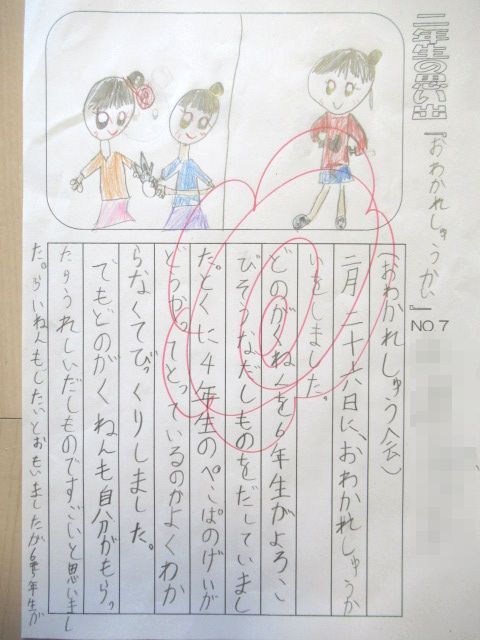 二年生の思い出『おわかれしゅうかい』NO.7
(おわかれしゅう会)
二月二十六日に、おわかれしゅうか
いをしました。
どのがくねんを6年生がよろこ
びそうなだしものをだしていまし
た。とくに4年生のぺこぱのげいが
どうやってとっているのかよくわか
らなくてびっくりしました。
でもどのがくねんも自分がもらっ
たらうれしいだしものですごいと思いまし
た。らいねんもしたいとおもいましたが6年生が